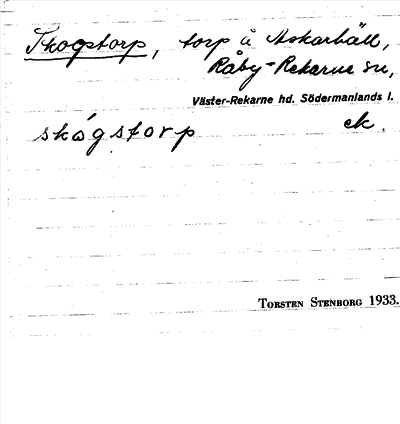 Skogstorp, torp å Askarhäll,
Råby-Rekarne sn,
Väster-Rekarne hd. Södermanlands l.
skógstorp ek.
Torsten Stenborg 1933.